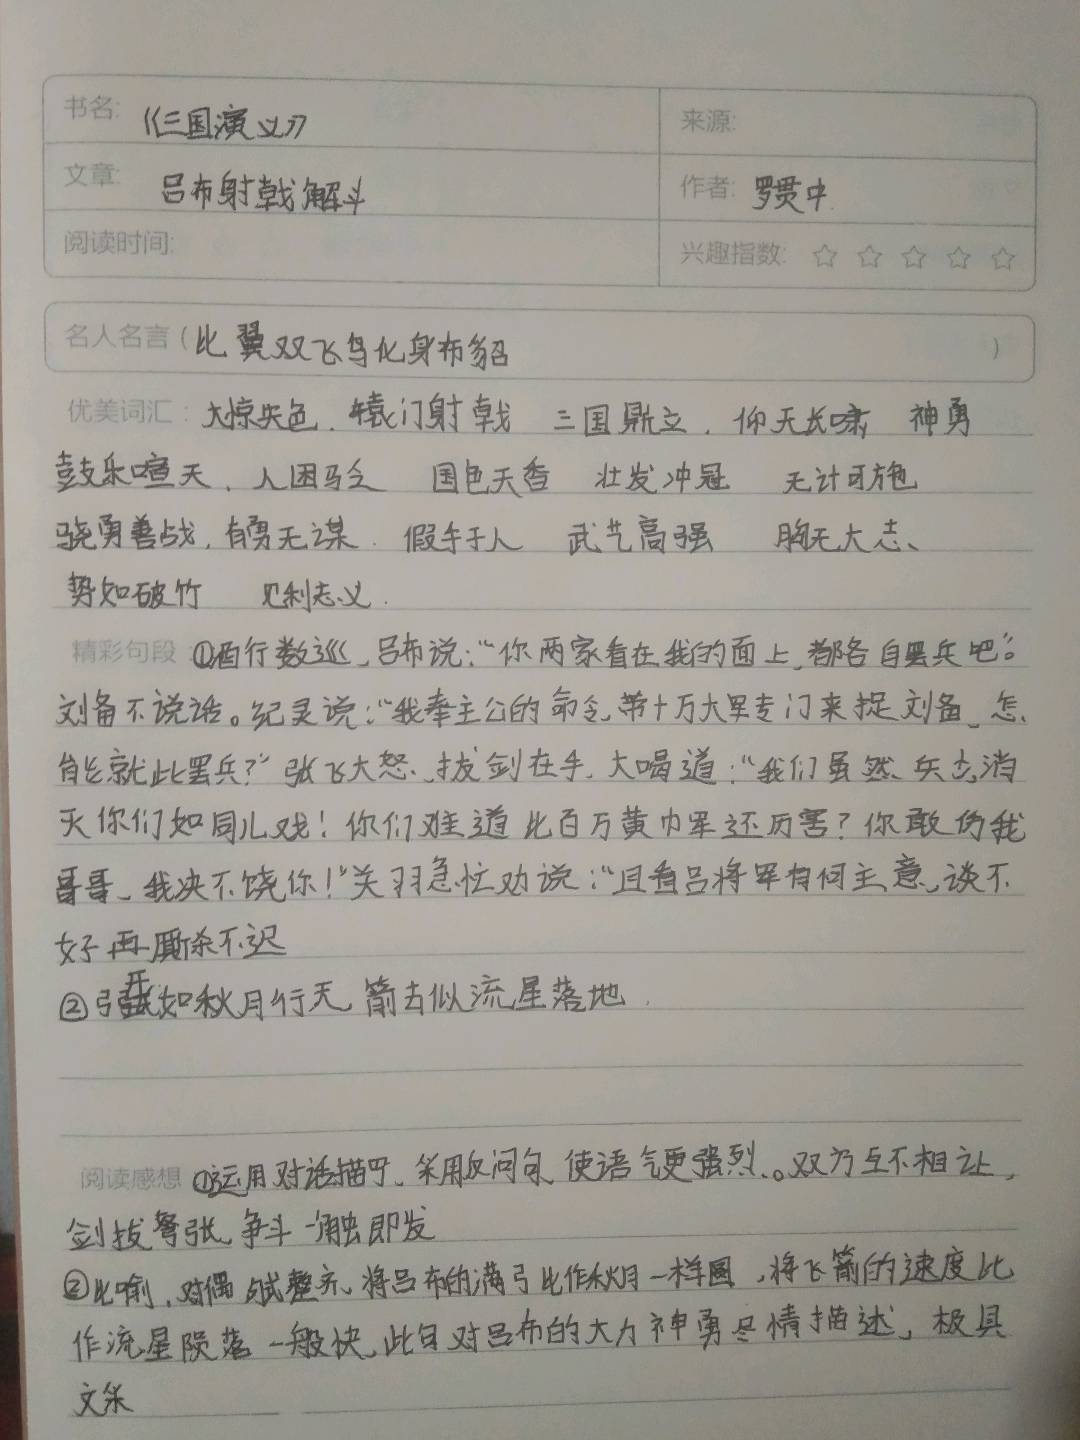 书名: 《三国演义》 来源:
文章: 吕布射戟解斗 作者: 罗贯中
阅读时间: 兴趣指数: ☆ ☆ ☆ ☆ ☆
名人名言(比翼双飞鸟化身布貂 )
优美词汇: 大惊失色. 辕门射戟 三国鼎立. 仰天长啸 神勇
鼓乐喧天、人困马乏 国色天香 壮发冲冠 无计可施
骁勇善战, 有勇无谋. 假手于人 武艺高强 胸无大志、
势如破竹 见利志义.
精彩句段: ①酒行数巡、吕布说:“你两家看在我的面上、都各自罢兵吧”。
刘备不说话。纪灵说:“我奉主公的命令、带十万大军专门来捉刘备、怎
能就此罢兵?”张飞大怒、拔剑在手、大喝道:“我们虽然兵少,消
灭你们如同儿戏!你们难道比百万黄巾军还厉害?你敢伤我
哥哥、我决不饶你!”关羽急忙劝说:“且看吕将军有何主意、谈不
好再厮杀不迟
②弓开如秋月行天, 箭去似流星落地.
阅读感想 ①运用对话描写、采用反问句, 使语气更强烈.。双方互不相让,
剑拔弩张, 争斗一触即发
②比喻、对偶 整齐、将吕布的满弓比作秋月一样圆,将飞箭的速度比
作流星陨落一般快、此句对吕布的大力神勇尽情描述, 极具
文采